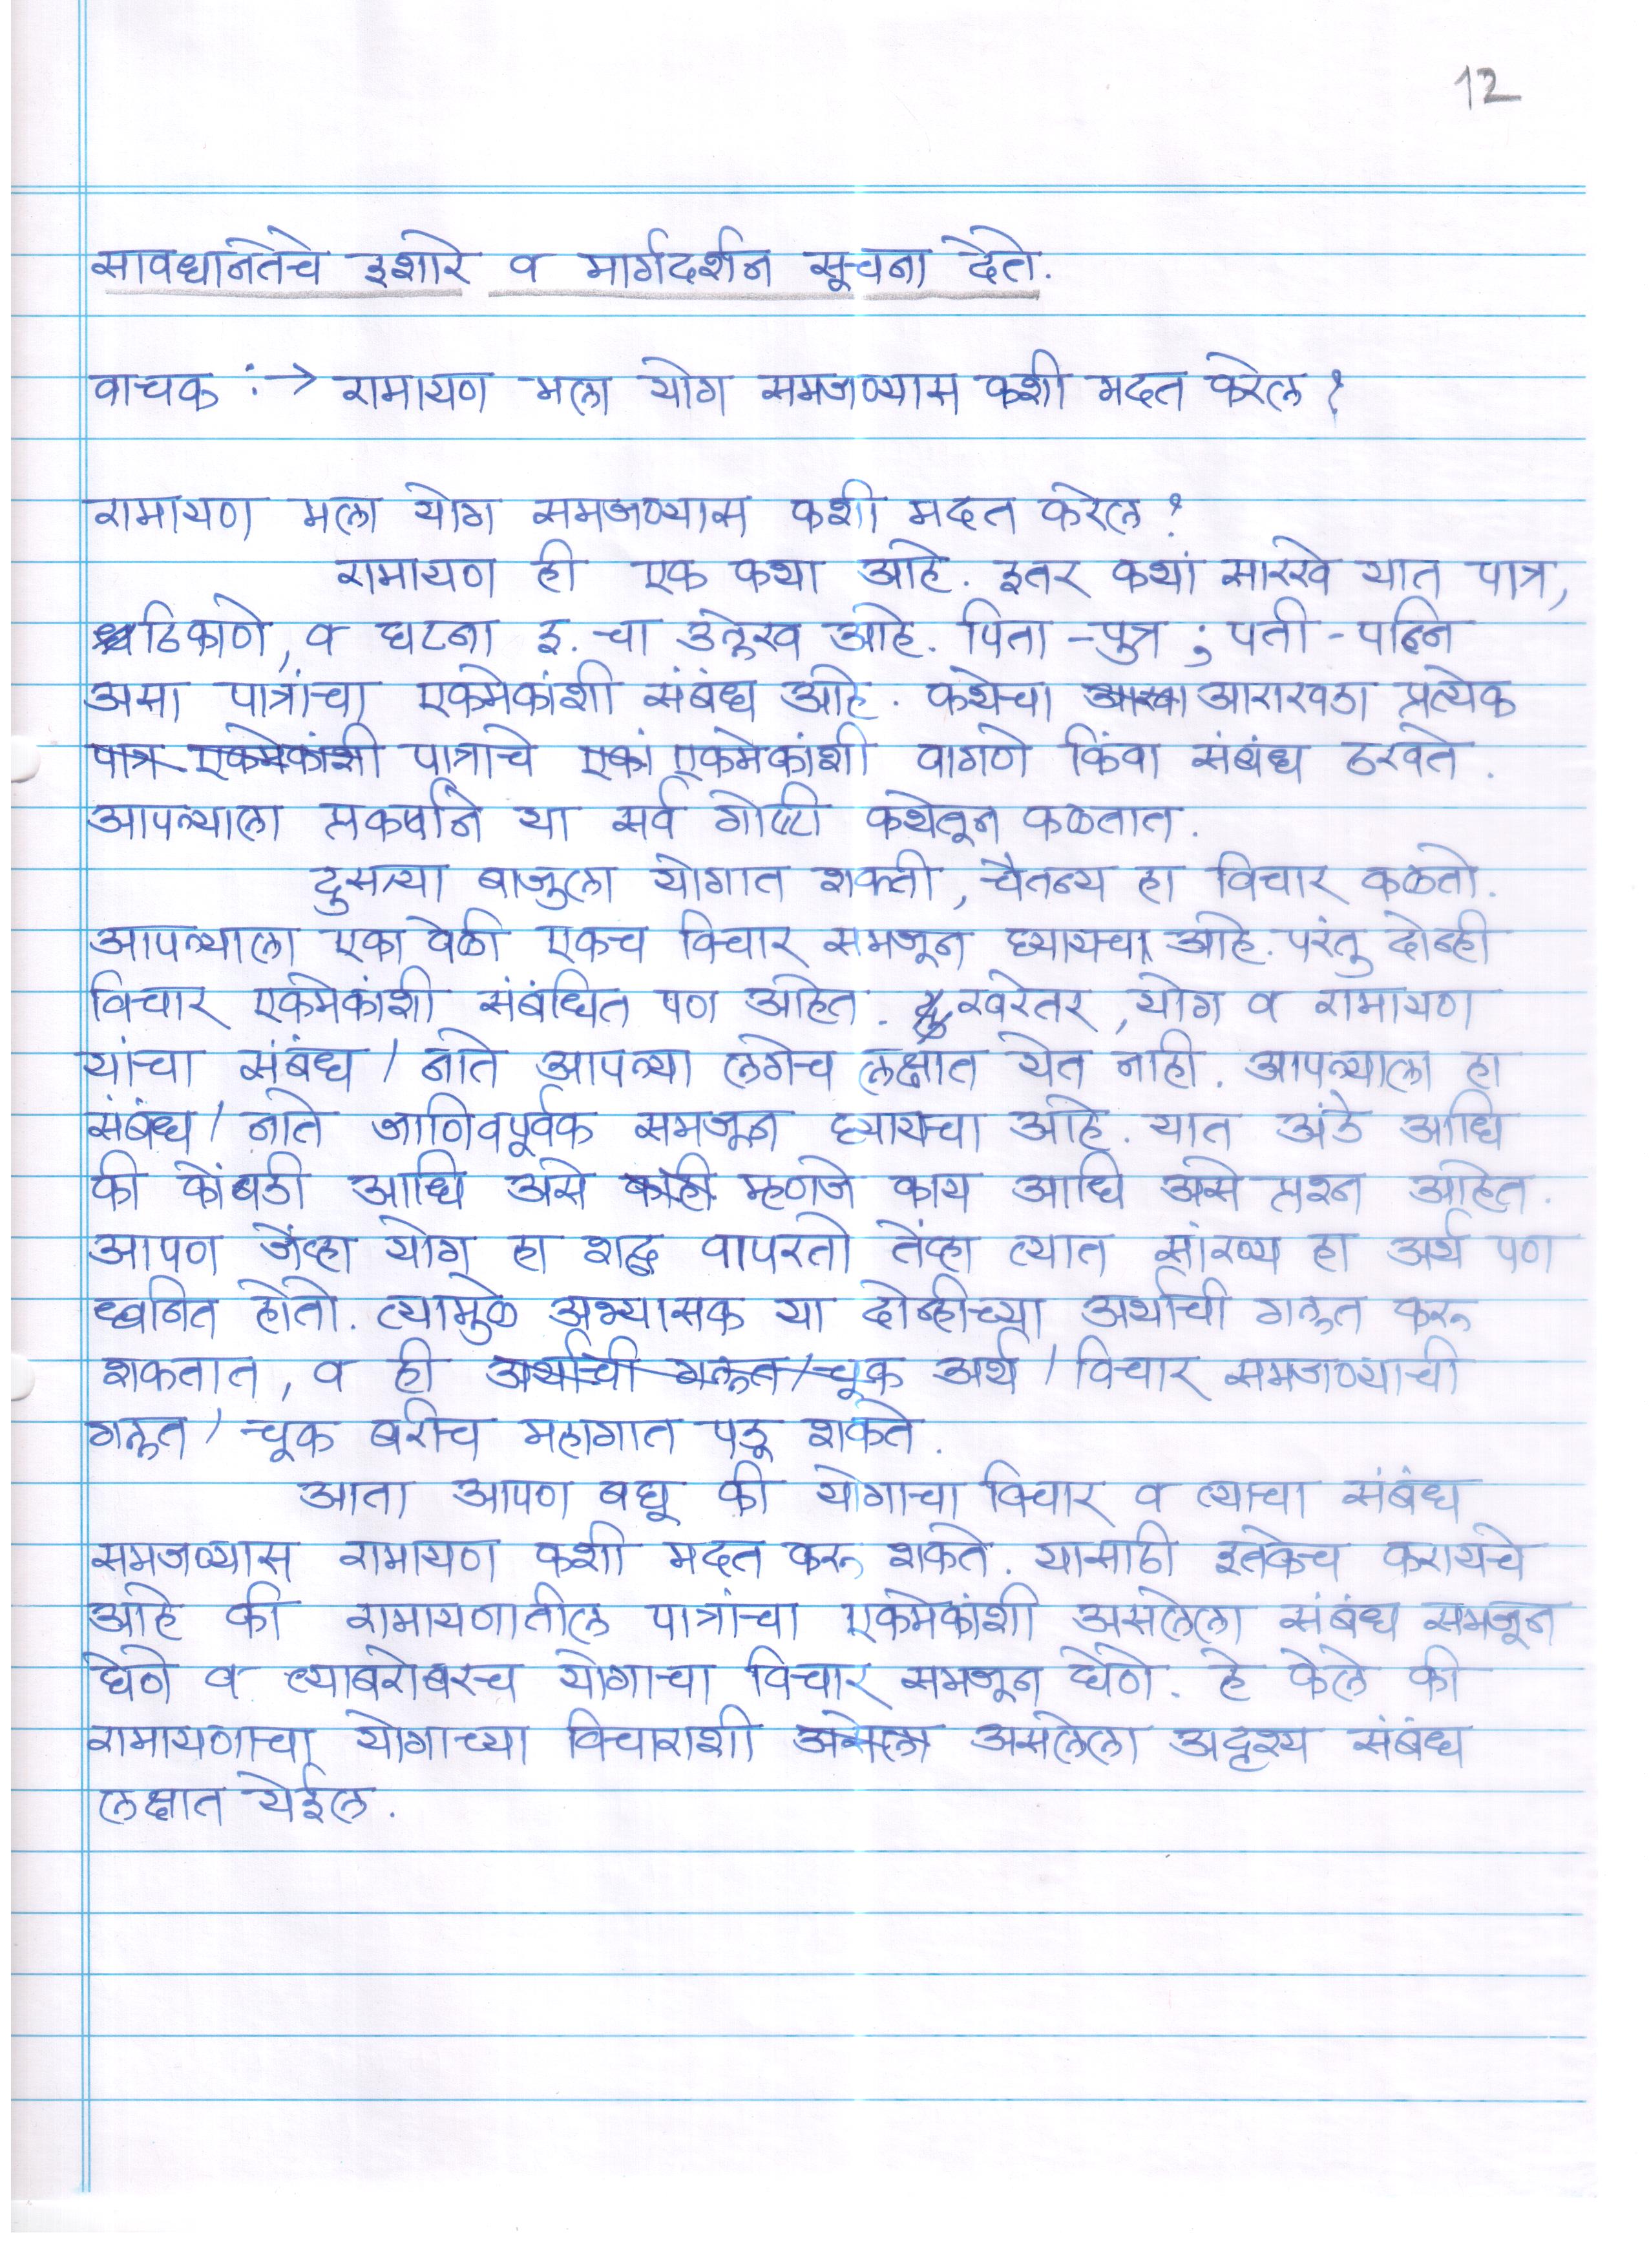 12
सावधानतेचे इशारे व मार्गदर्शन सूचना देते.
वाचक :→ रामायण मला योग समजण्यास कशी मदत करेल ?
रामायण मला योग समजण्यास कशी मदत करेल ?
रामायण ही एक कथा आहे. इतर कथां सारखे यात पात्र,
ठिकाणे, व घटना इ. चा उल्लेख आहे. पिता - पुत्र ; पती - पत्नि
असा पात्रांचा एकमेकांशी संबंध आहे. कथेचा आराखडा प्रत्येक
पात्र एकमेकांशी पात्राचे एकां एकमेकांशी वागणे किंवा संबंध ठरवते.
आपल्याला प्रकर्षाने या सर्व गोष्टी कथेतून कळतात.
दुसऱ्या बाजुला योगात शक्ती, चैतन्य हा विचार कळतो.
आपल्याला एका वेळी एकच विचार समजून घ्यायचा आहे. परंतु दोन्ही
विचार एकमेकांशी संबंधित पण आहेत. खरेतर, योग व रामायण
यांचा संबंध / नाते आपल्या लगेच लक्षात येत नाही. आपल्याला हा
संबंध / नाते जाणिवपूर्वक समजून घ्यायचा आहे. यात अंडे आधि
की कोंबडी आधि असे काही म्हणजे काय आधि असे प्रश्न आहेत.
आपण जेंव्हा योग हा शद्ब वापरतो तेंव्हा त्यात सांख्य हा अर्थ पण
ध्वनित होतो. त्यामुळे अभ्यासक या दोन्हीच्या अर्थाची गल्लत करू
शकतात, व ही अर्थाची गल्लत / चूक अर्थ / विचार समजण्याची
गल्लत / चूक बरीच महागात पडू शकते.
आता आपण बघू की योगाचा विचार व त्याचा संबंध
समजण्यास रामायण कशी मदत करू शकते. यासाठी इतकेच करायचे
आहे की रामायणातील पात्रांचा एकमेकांशी असलेला संबंध समजून
घेणे व त्याबरोबरच योगाचा विचार समजून घेणे. हे केले की
रामायणाचा योगाच्या विचाराशी असेला असलेला अदृश्य संबंध
लक्षात येईल.